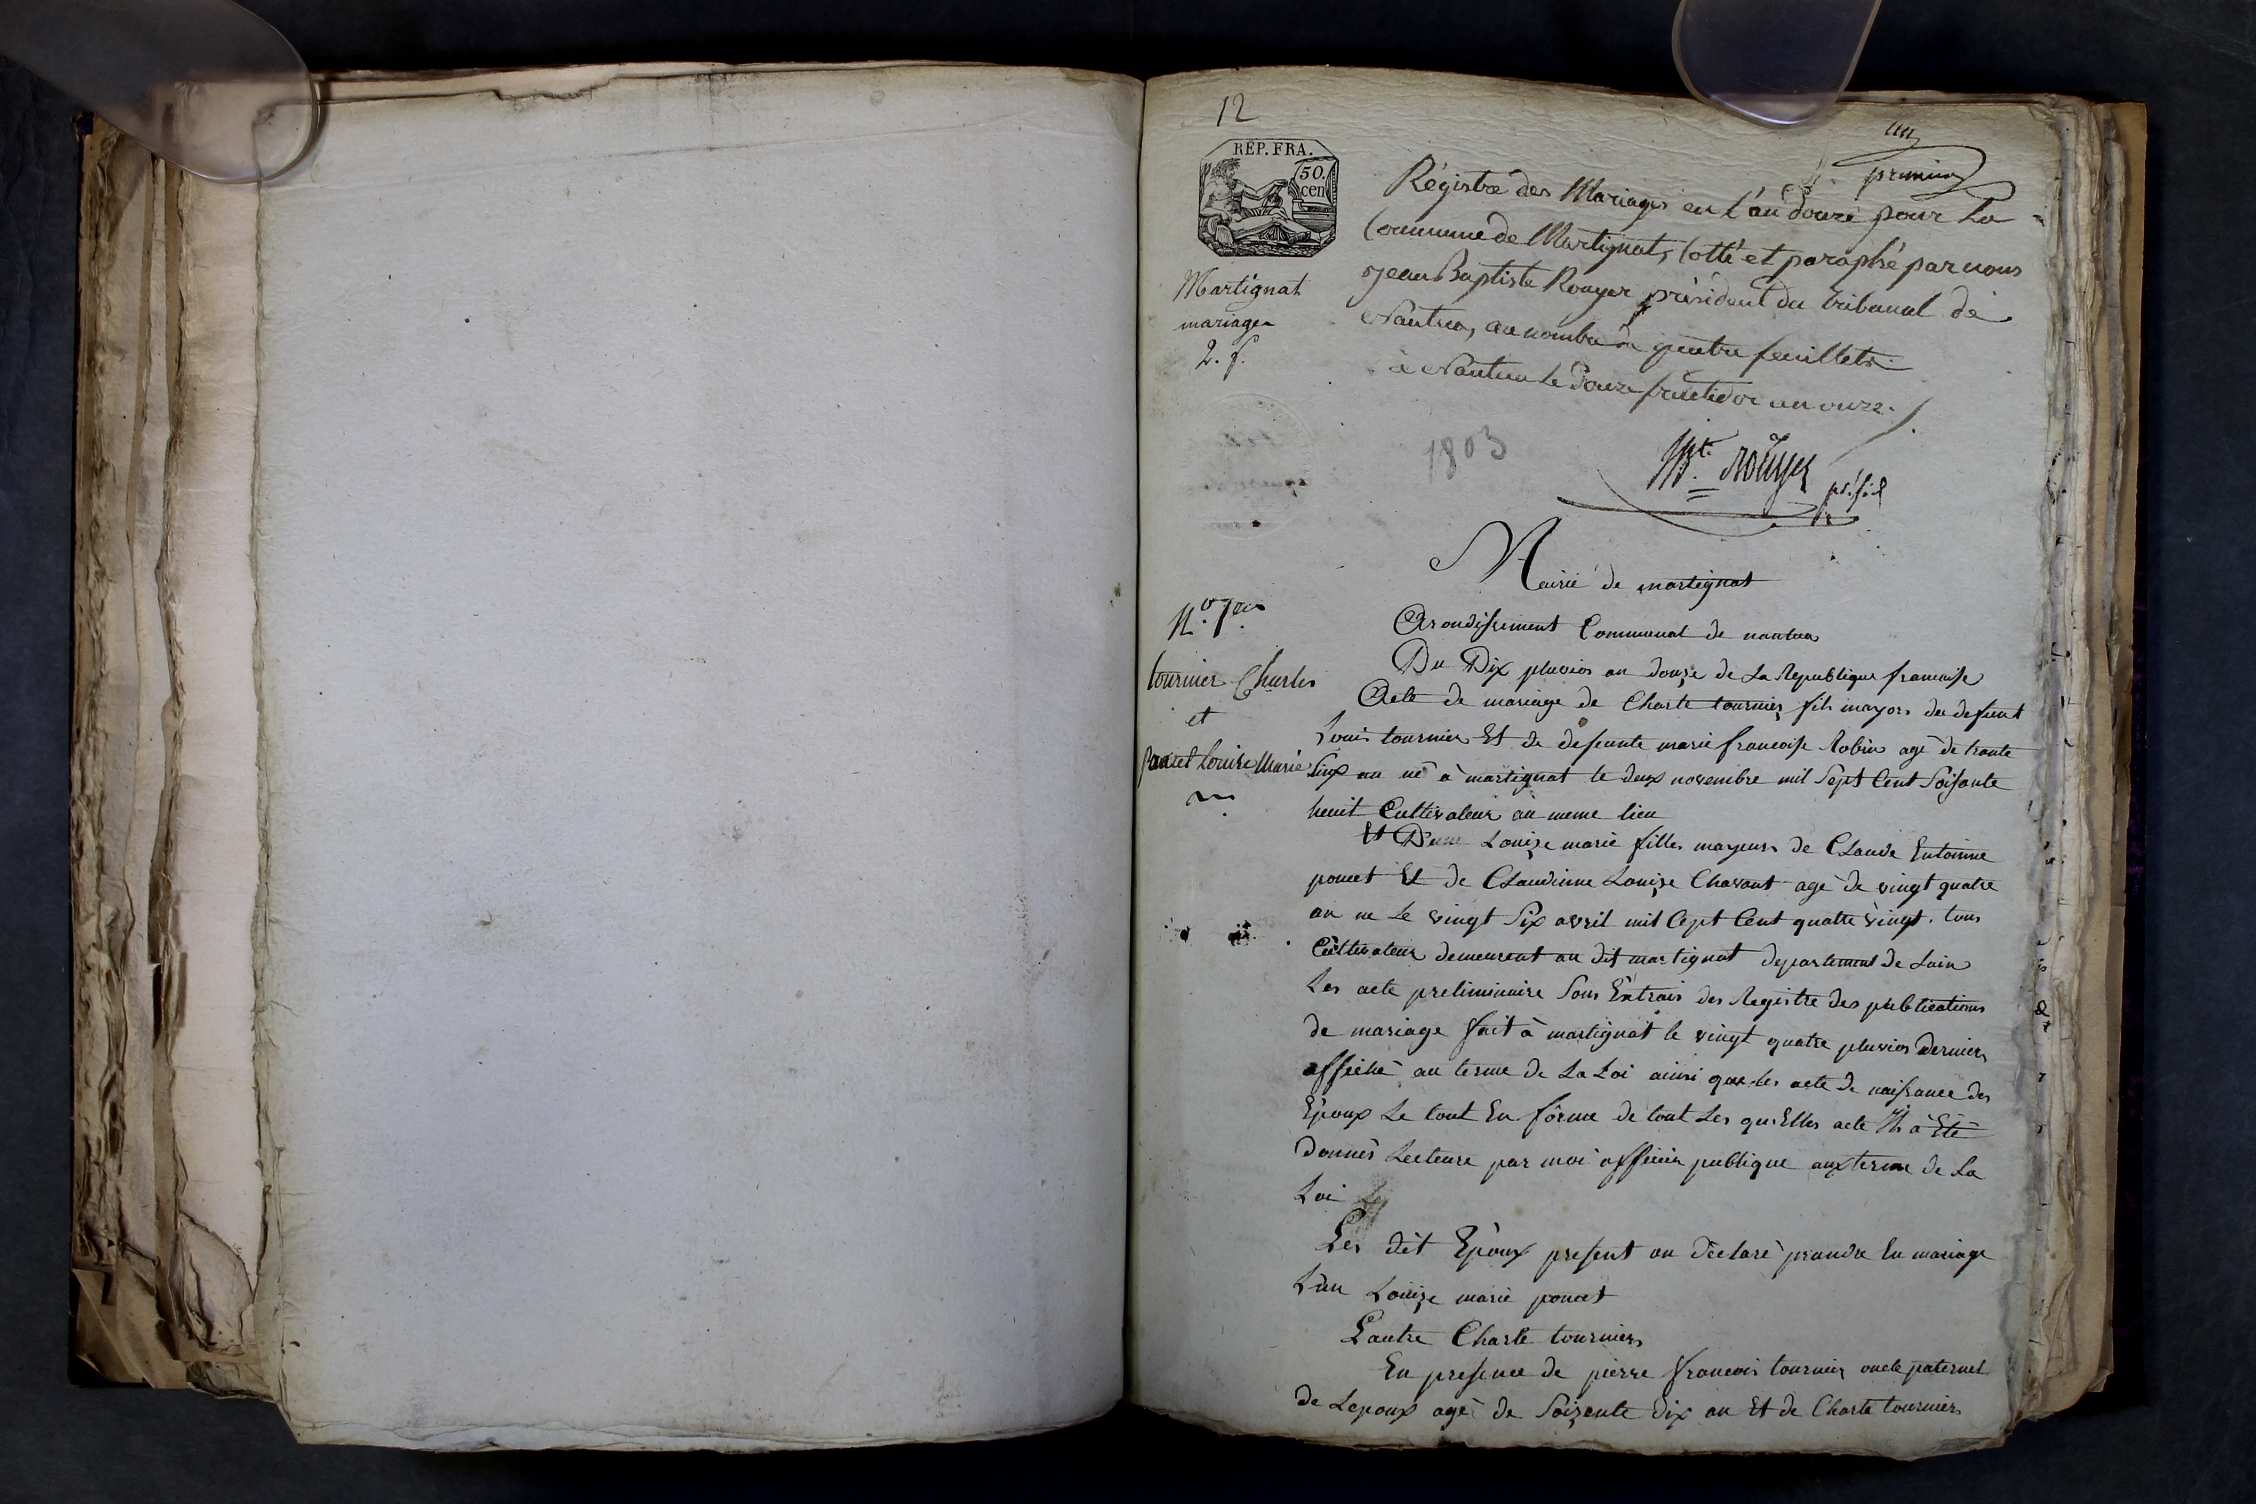 12
un
premier
REP. FRA.
50.
cen
Régistre des Mariages en l'an douze pour La
Commune de Martignat, Cotté et paraphé par nous
Jean Baptiste Rouyer président du tribunal de
Nantua, au nombre de quatre feuillets.
à Nantua le douze fructidor an onze.
Martignat
mariages
2. f.
1803
Bte. Rouyer
Mairie de martignat
Arondissement Communal de nantua
Du Dix pluvios an douze de La Republique francaise
N.º 1er
tournier Charles
et
Poncet Louise Marie
Acte de mariage de Charle tournier fils mayor du defunt
Louis tournier Et de defunte marie francoise Robin agé de trante
sinq an né à martignat le deux novembre mil Sept Cent Soisante
heuit Cultivateur au meme lieu
Et D'une Louize marie filles mayeurs de Claude Entoinne
poncet Et de Claudinne Louize Chavant agé de vingt quatre
an ne Le vingt Six avril mil Cept Cent quatre vingt. tous
Cultivateur demeurant au dit martignat departement de Lain
Les acte preliminaire Sons Extrais des Registre des publications
de mariage fait à martignat le vingt quatre pluvios dernier
affiché au terme de La Loi ainsi que les acte de naissance des
Epoux Le tout En forme de tout Les quElles acte Il a Eté
Donnés Lecteure par moi officier publique aux terme de La
Loi
Les dit Epoux present on déclaré prandre En mariage
L'un Louize marie poncet
Lautre Charle tournier
En presence de pierre francois tournier oncle paternel
de Lepoux agé de Soizente dix an Et de Charle tournier